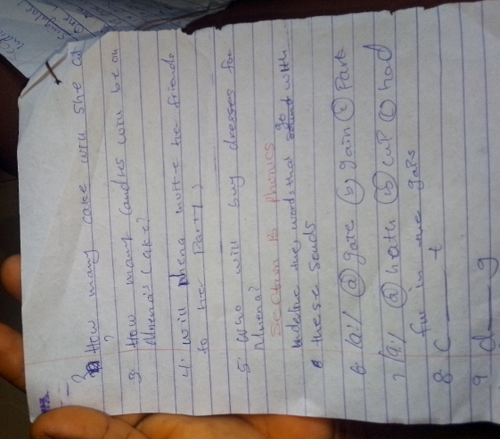 2. How many cake will she cut
?
3. How many candles will be on
Nnena's cake?
4. Will Nnena invite her friends
to her party?
5. Who will buy dresses for
Nnena?
Section B Phonics
Underline the words that go with
these sounds
6. /a:/ (a) gate (b) gain (c) Park
7. /a:/ (a) heath (b) cup (c) had
Fill in the gaps
8. c __ t
9. d __ g